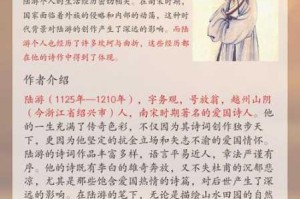 陆游个人的生活经历密切相关。在南宋时期，
国家面临着外族的侵略和内部的动荡，这种时
代背景对陆游的创作产生了深远的影响。而陆
游个人也经历了许多坎坷与曲折，这些经历都
在他的诗词中得到了体现。
作者介绍
陆游（1125年—1210年），字务观，号放翁，越州山阴
（今浙江省绍兴市）人，南宋时期著名的爱国诗人。他
的一生充满了传奇色彩，不仅因为其诗词创作独步天
下，更因为他坚定的抗金立场和矢志不渝的爱国情怀。
陆游的诗词作品丰富多样，语言平易近人，章法严谨有
序。他的诗既有李白的雄奇奔放，又不失杜甫的沉郁悲
凉，尤其是那些饱含爱国热情的诗篇，对后世产生了深
远的影响。在陆游的笔下，无论是描绘山水田园的自然